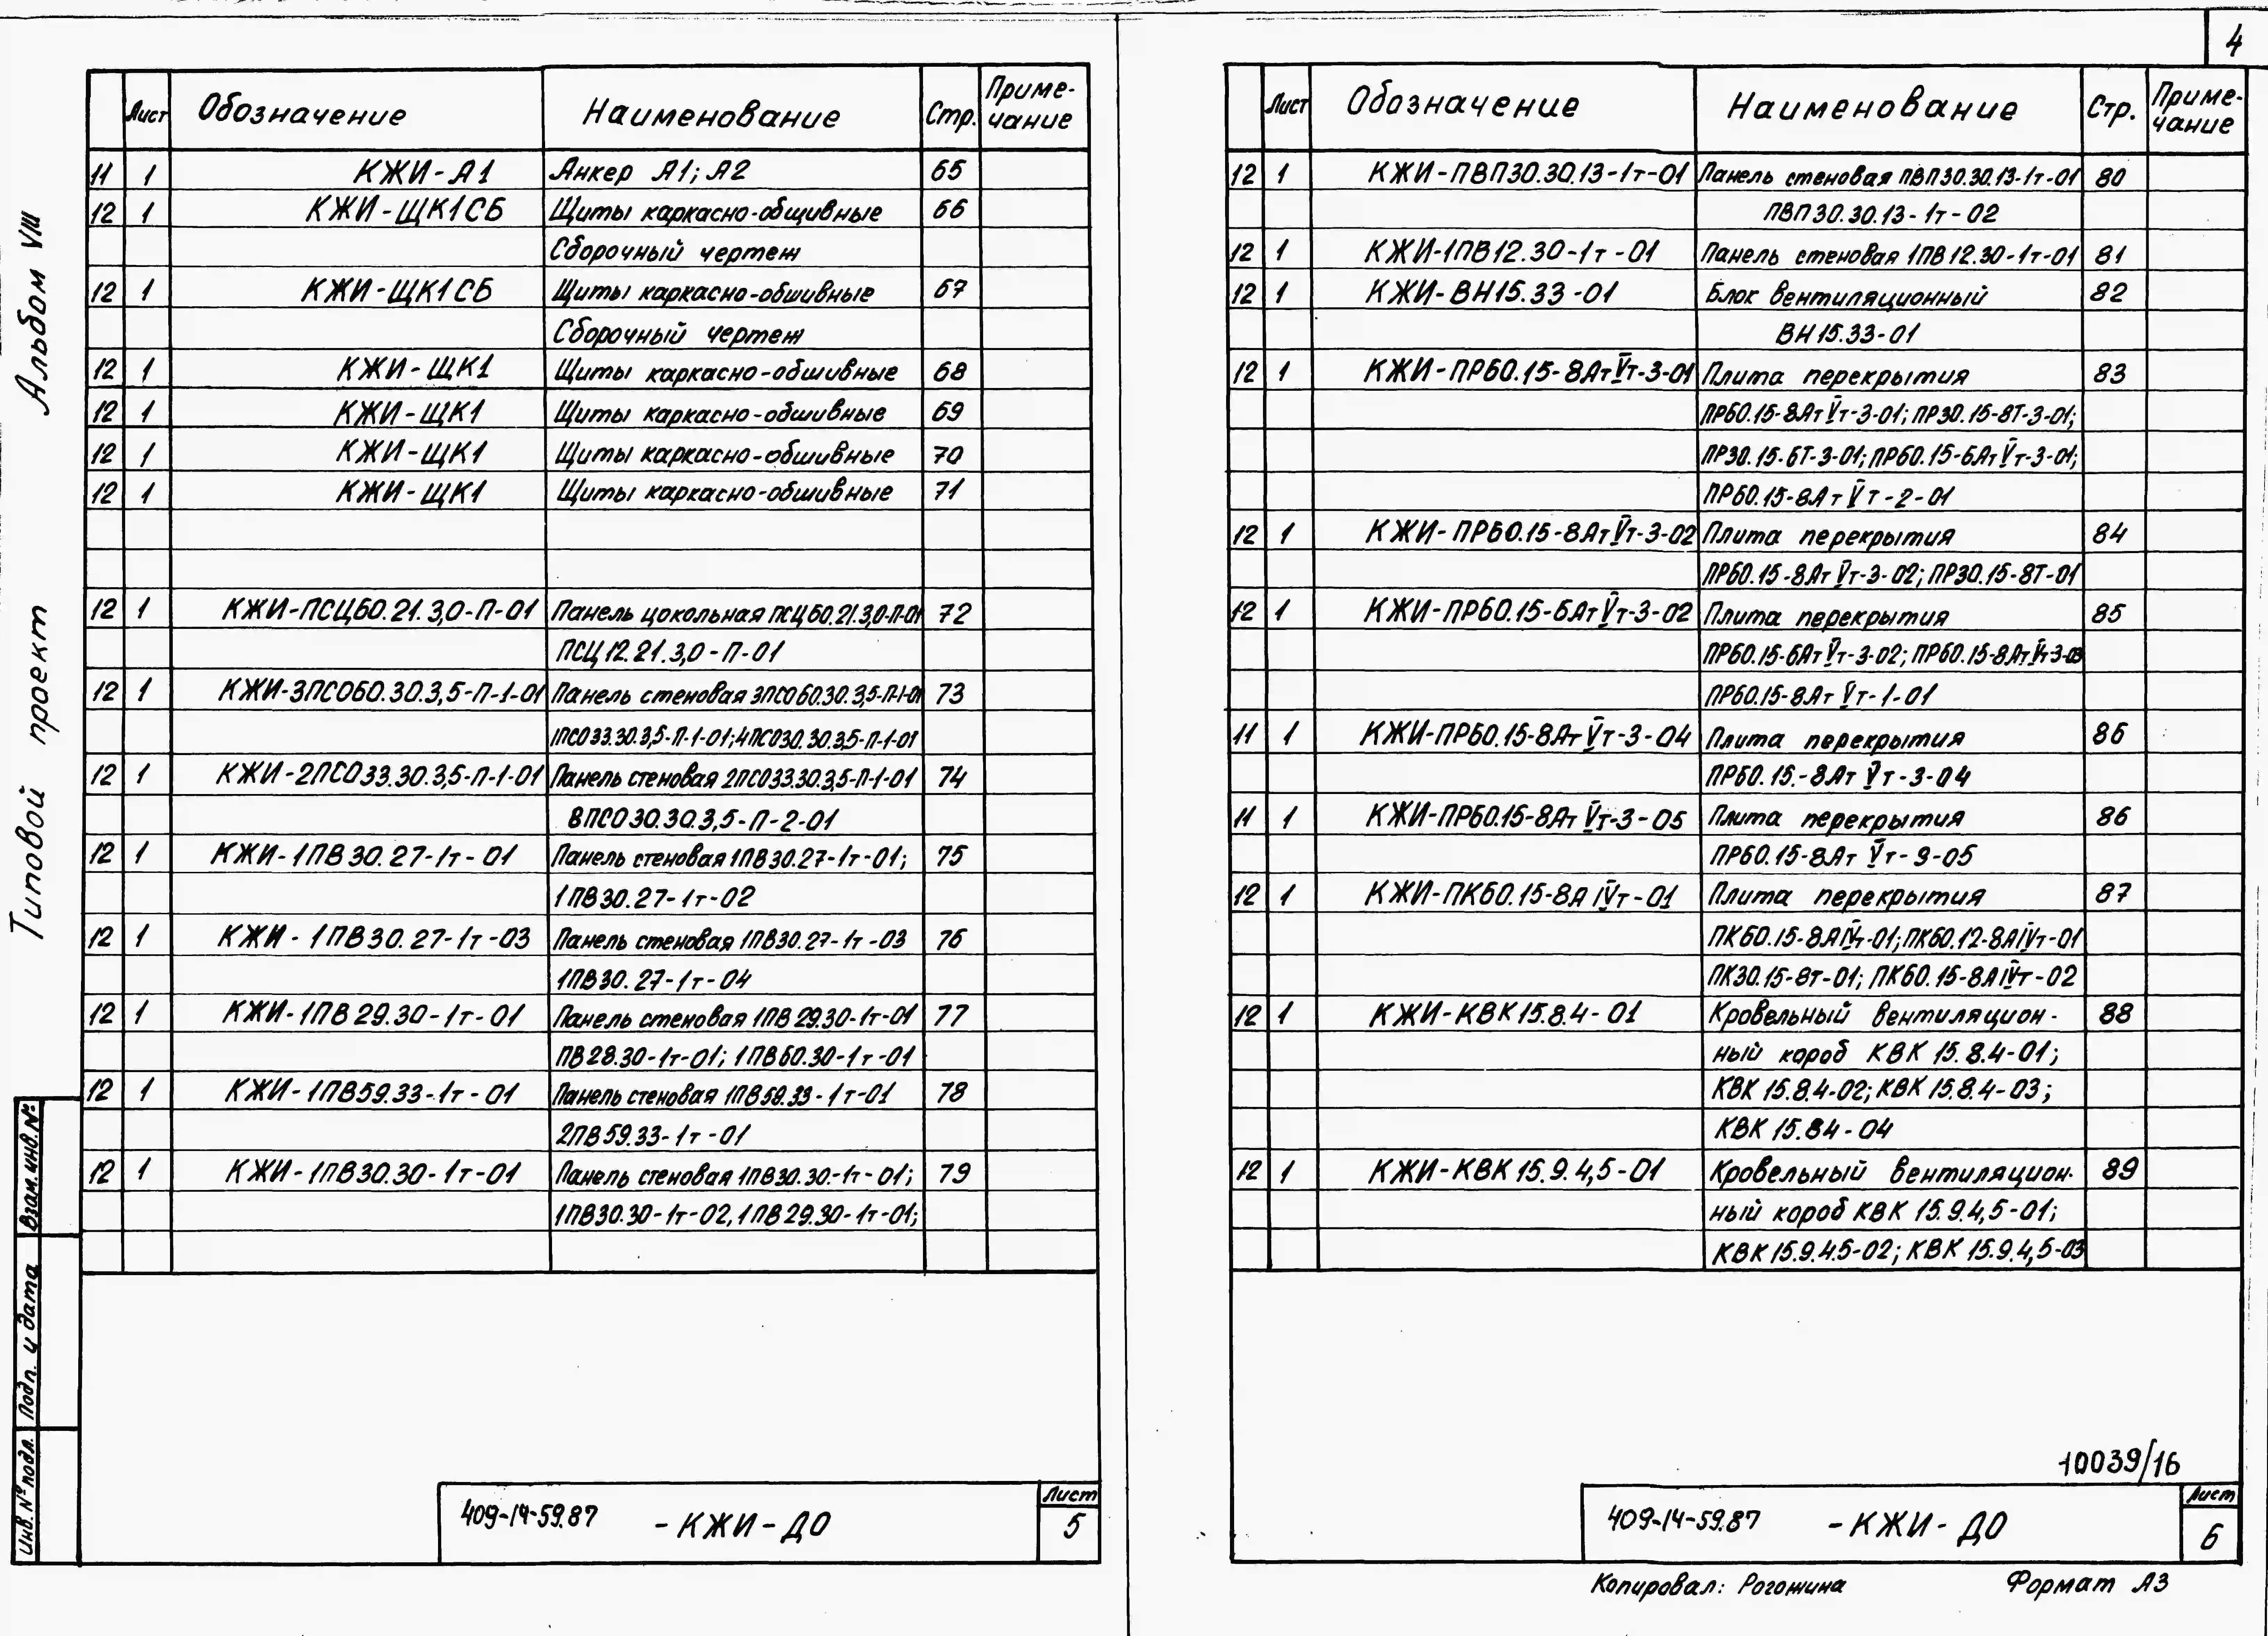 4
Альбом VIII
Типовой проект
Лист Обозначение Наименование Стр. Приме-
чание
11 1 КЖИ-А1 Анкер А1; А2 65
12 1 КЖИ-ЩК1СБ Щиты каркасно-общивные 66
Сборочный чертеж
12 1 КЖИ-ЩК1СБ Щиты каркасно-обшивные 67
Сборочный чертеж
12 1 КЖИ-ЩК1 Щиты каркасно-обшивные 68
12 1 КЖИ-ЩК1 Щиты каркасно-обшивные 69
12 1 КЖИ-ЩК1 Щиты каркасно-обшивные 70
12 1 КЖИ-ЩК1 Щиты каркасно-обшивные 71
12 1 КЖИ-ПСЦ60.21.3,0-П-01 Панель цокольная ПСЦ60.21.3,0-П-01 72
ПСЦ12.21.3,0-П-01
12 1 КЖИ-3ПСО60.30.3,5-П-1-01 Панель стеновая 3ПСО60.30.3,5-П-1-01 73
1ПСО33.30.3,5-П-1-01; 4ПСО30.30.3,5-П-1-01
12 1 КЖИ-2ПСО33.30.3,5-П-1-01 Панель стеновая 2ПСО33.30.3,5-П-1-01 74
8ПСО30.30.3,5-П-2-01
12 1 КЖИ-1ПВ30.27-1т-01 Панель стеновая 1ПВ30.27-1т-01; 75
1ПВ30.27-1т-02
12 1 КЖИ-1ПВ30.27-1т-03 Панель стеновая 1ПВ30.27-1т-03 76
1ПВ30.27-1т-04
12 1 КЖИ-1ПВ29.30-1т-01 Панель стеновая 1ПВ29.30-1т-01 77
ПВ28.30-1т-01; 1ПВ60.30-1т-01
12 1 КЖИ-1ПВ59.33-1т-01 Панель стеновая 1ПВ59.33-1т-01 78
2ПВ59.33-1т-01
12 1 КЖИ-1ПВ30.30-1т-01 Панель стеновая 1ПВ30.30-1т-01; 79
1ПВ30.30-1т-02, 1ПВ29.30-1т-01;
Взам. инв. №
Подп. и дата
Инв. № подл.
409-14-59.87 -КЖИ-ДО
Лист
5
Лист Обозначение Наименование Стр. Приме-
чание
12 1 КЖИ-ПВП30.30.13-1т-01 Панель стеновая ПВП30.30.13-1т-01 80
ПВП30.30.13-1т-02
12 1 КЖИ-1ПВ12.30-1т-01 Панель стеновая 1ПВ12.30-1т-01 81
12 1 КЖИ-ВН15.33-01 Блок вентиляционный 82
ВН15.33-01
12 1 КЖИ-ПР60.15-8АтVт-3-01 Плита перекрытия 83
ПР60.15-8АтVт-3-01; ПР30.15-8Т-3-01;
ПР30.15-6Т-3-01; ПР60.15-6АтVт-3-01;
ПР60.15-8АтVт-2-01
12 1 КЖИ-ПР60.15-8АтVт-3-02 Плита перекрытия 84
ПР60.15-8АтVт-3-02; ПР30.15-8Т-01
12 1 КЖИ-ПР60.15-6АтVт-3-02 Плита перекрытия 85
ПР60.15-6АтVт-3-02; ПР60.15-8АтVт-3-03
ПР60.15-8АтVт-1-01
11 1 КЖИ-ПР60.15-8АтVт-3-04 Плита перекрытия 86
ПР60.15-8АтVт-3-04
11 1 КЖИ-ПР60.15-8АтVт-3-05 Плита перекрытия 86
ПР60.15-8АтVт-3-05
12 1 КЖИ-ПК60.15-8АIVт-01 Плита перекрытия 87
ПК60.15-8АIVт-01; ПК60.12-8АIVт-01
ПК30.15-8т-01; ПК60.15-8АIVт-02
12 1 КЖИ-КВК15.8.4-01 Кровельный вентиляцион- 88
ный короб КВК 15.8.4-01;
КВК 15.8.4-02; КВК 15.8.4-03;
КВК 15.84-04
12 1 КЖИ-КВК15.9.4,5-01 Кровельный вентиляцион- 89
ный короб КВК 15.9.4,5-01;
КВК15.9.4.5-02; КВК 15.9.4,5-03
10039/16
409-14-59.87 -КЖИ-ДО
Лист
6
Копировал: Рогожина Формат А3